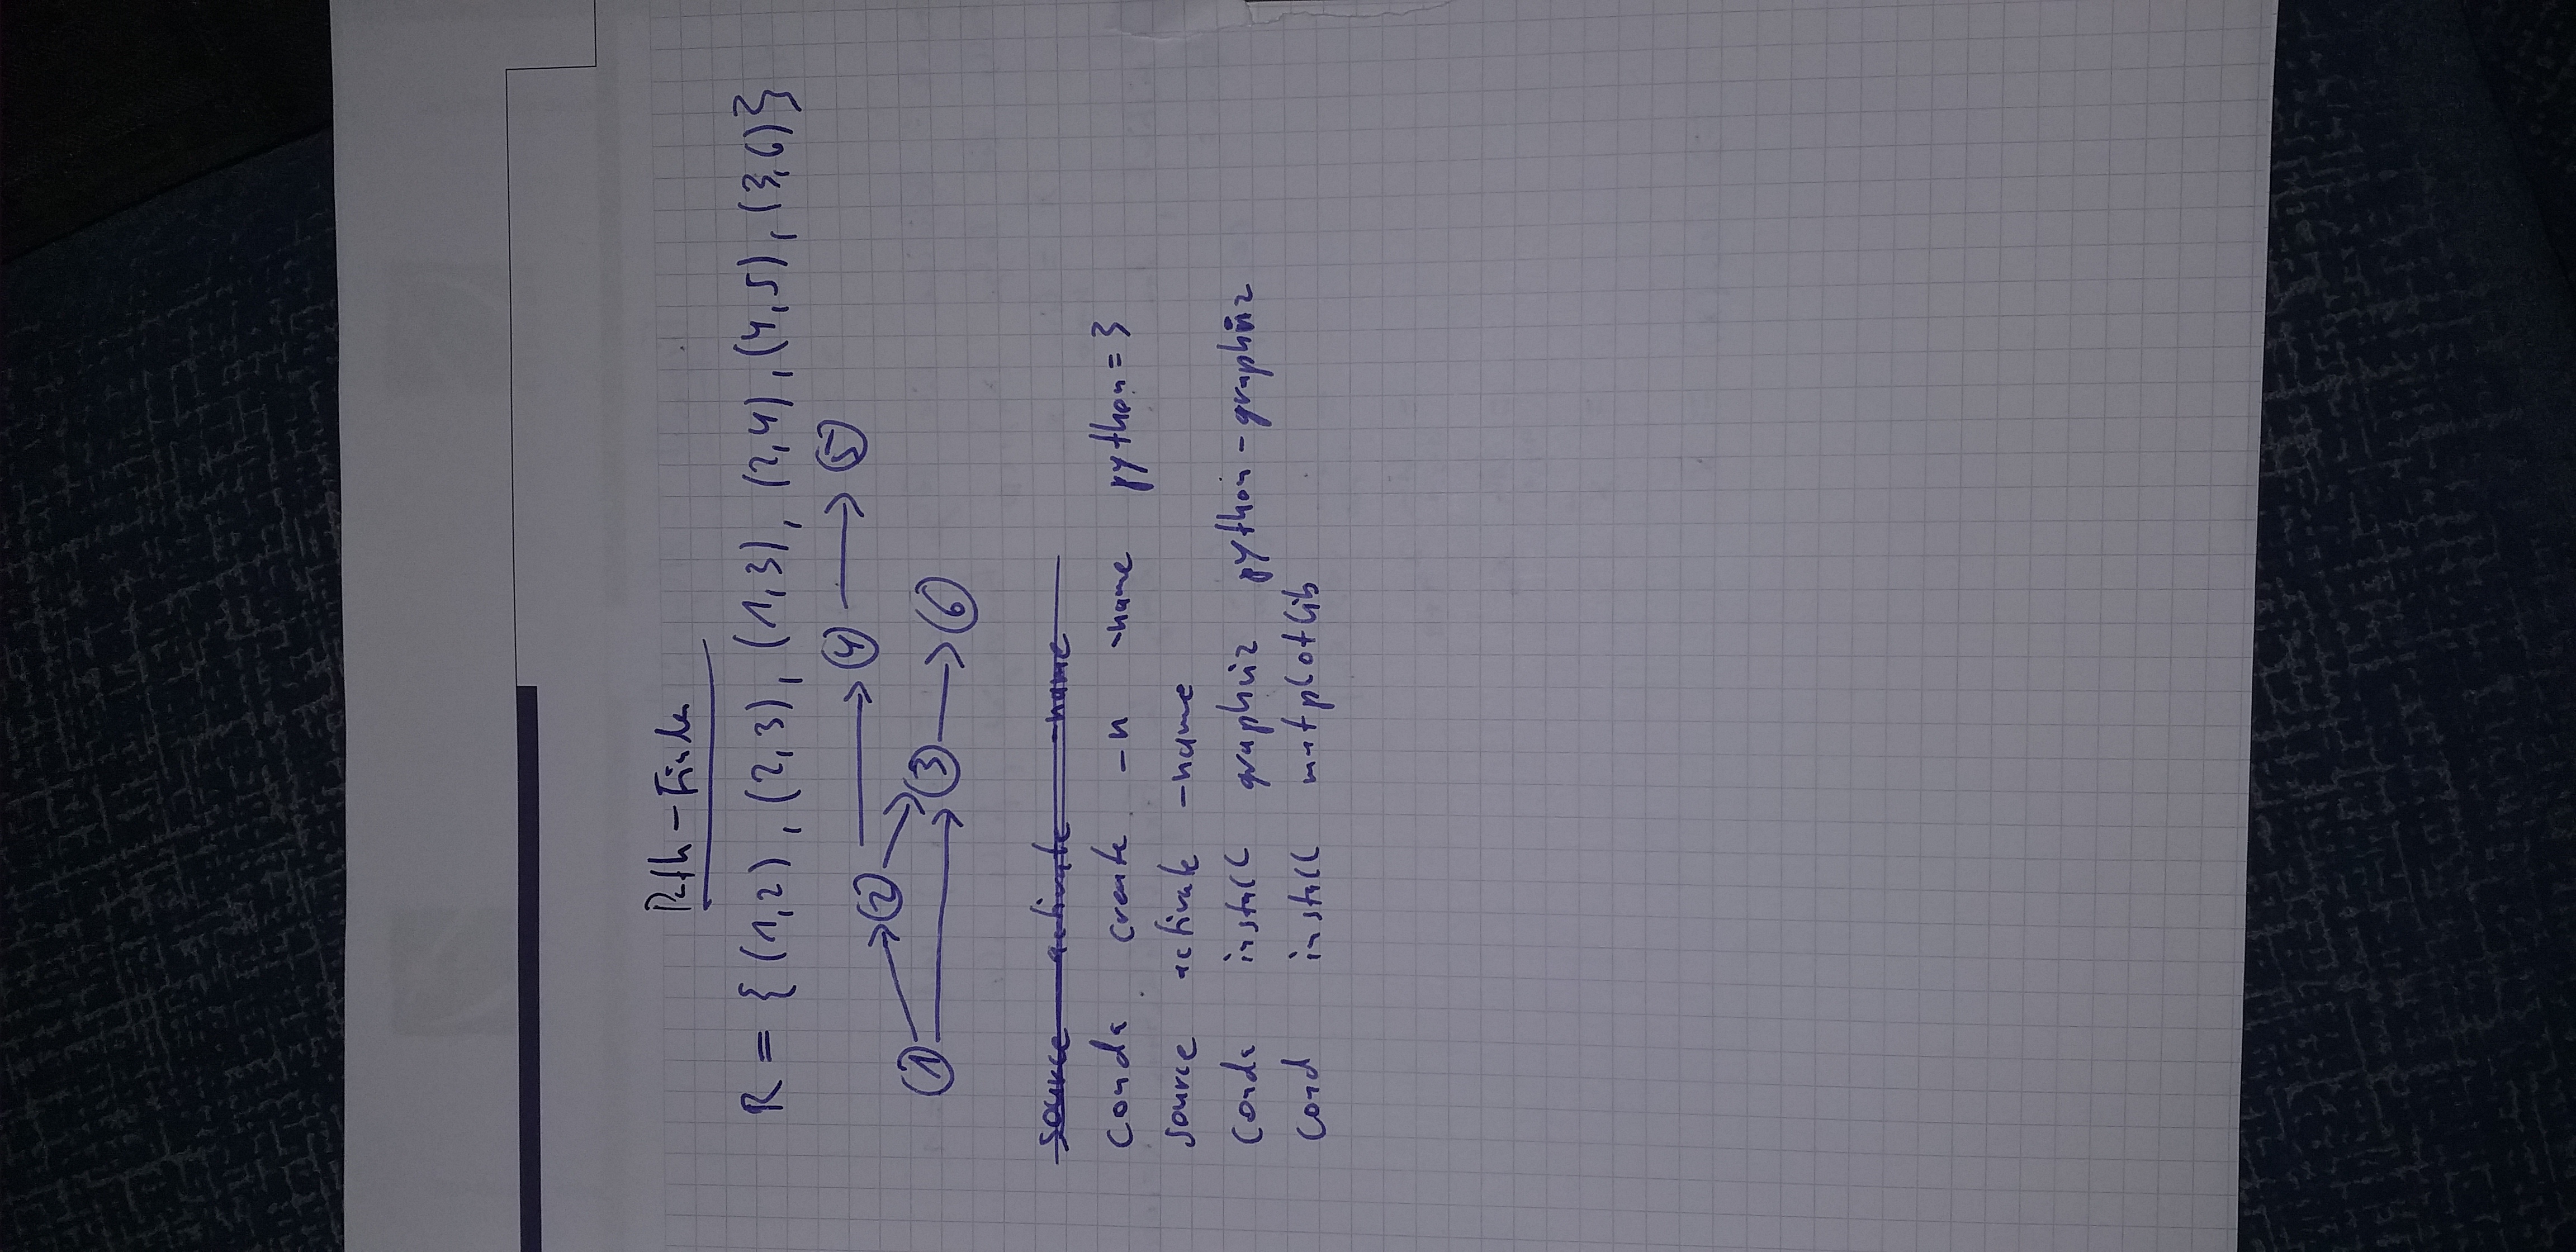 Path-Finder
R = {(1,2), (2,3), (1,3), (2,4), (4,5), (3,6)}
1 2 3 4 5 6
source activate -name
conda create -n -name python=3
source activate -name
conda install graphviz python-graphviz
cond install matplotlib